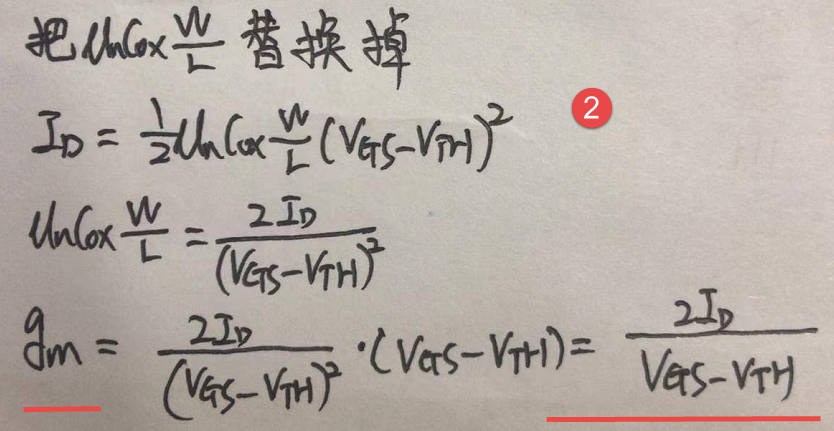 把 μnCox W/L 替换掉
I_D = 1/2 μnCox W/L (V_GS-V_TH)^2
2
μnCox W/L = 2I_D/(V_GS-V_TH)^2
g_m = 2I_D/(V_GS-V_TH)^2 ·(V_GS-V_TH) = 2I_D/(V_GS-V_TH)